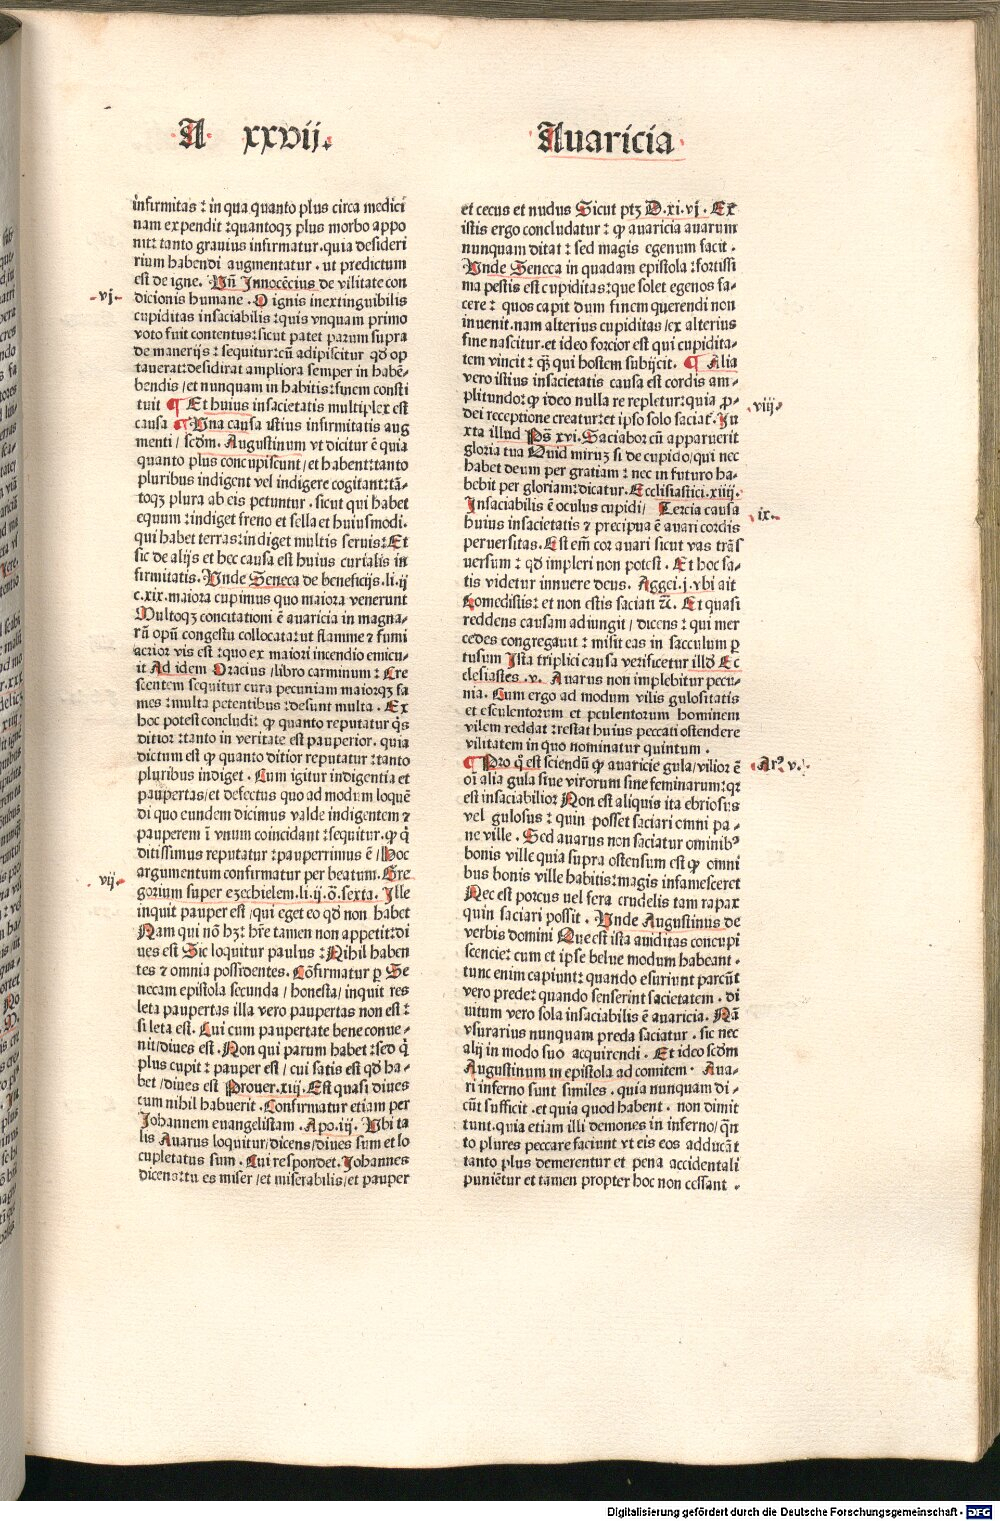 A xxvij.
Auaricia
infirmitas : in qua quanto plus circa medici
nam expendit : quantoqꝫ plus morbo appo
nit: tanto grauius infirmatur. quia desideri
rium habendi augmentatur . ut predictum
est de igne. Vñ Innocẽcius de vilitate con
.vj. dicionis humane . O ignis inextinguibilis
cupiditas insaciabilis : quis vnquam primo
voto fuit contentus: sicut patet parum supra
de manerijs : sequitur: cũ adipiscitur qđ op
tauerat: desidirat ampliora semper in habẽ-
bendis / et nunquam in habitis: finem consti
tuit ¶ Et huius insacietatis multiplex est
causa ¶ Vna causa istius infirmitatis aug
menti / scđm . Augustinum vt dicitur ẽ quia
quanto plus concupiscunt / et habent: tanto
pluribus indigent vel indigere cogitant: tã-
toqꝫ plura ab eis petuntur . sicut qui habet
equum : indiget freno et sella et huiusmodi.
qui habet terras: indiget multis seruis: Et
sic de alijs et hec causa est huius curialis in
firmitatis. Vnde Seneca de beneficijs. li. ij
c. xix. maiora cupimus quo maiora venerunt
Multoqꝫ concitationi ẽ auaricia in magna-
rũ opũ congestu collocata: ut flamme ⁊ fumi
acrior vis est : quo ex maiori incendio emicu-
it Ad idem Oracius / libro carminum : Cre
scentem sequitur cura pecuniam maiorqꝫ fa
mes : multa petentibus : desunt multa . Ex
hoc potest concludi: ꝙ quanto reputatur q̃s
ditior : tanto in veritate est pauperior. quia
dictum est ꝙ quanto ditior reputatur : tanto
pluribus indiget . Cum igitur indigentia et
paupertas / et defectus quo ad modum loquẽ
di quo eundem dicimus valde indigentem ⁊
pauperem ĩ vnum coincidant : sequitur. ꝙ q̃
ditissimus reputatur : pauperrimus ẽ / Hoc
argumentum confirmatur per beatum. Gre
.vij. gorium super ezechielem. li. ij. õ. sexta. Ille
inquit pauper est / qui eget eo qđ non habet
Nam qui nõ hꝫ : hr̃e tamen non appetit: di
ues est Sic loquitur paulus : Nihil haben
tes ⁊ omnia possidentes. Cõfirmatur ꝑ Se
necam epistola secunda / honesta / inquit res
leta paupertas illa vero paupertas non est :
si leta est. Cui cum paupertate bene conue-
nit / diues est . Non qui parum habet : sed q̃
plus cupit : pauper est / cui satis est qđ ha-
bet / diues est Prouer. xiij. Est quasi diues
cum nihil habuerit . Confirmatur etiam per
Johannem euangelistam . Apo. iij. Vbi ta
lis Auarus loquitur / dicens / diues sum et lo
cupletatus sum . Cui respondet. Johannes
dicens: tu es miser / et miserabilis / et pauper
et cecus et nudus Sicut ptꝫ D. xi. vj . Ex
istis ergo concludatur : ꝙ auaricia auarum
nunquam ditat : sed magis egenum facit .
Vnde Seneca in quadam epistola : fortissi
ma pestis est cupiditas: que solet egenos fa-
cere : quos capit dum finem querendi non
inuenit. nam alterius cupiditas / ex alterius
fine nascitur. et ideo forcior est qui cupidita-
tem vincit : q̃ꝫ qui hostem subijcit. ¶ Alia
vero istius insacietatis causa est cordis am-
plitundo: ꝙ ideo nulla re repletur: quia ꝓ-
dei receptione creatur: et ipso solo saciat̃. Ju .viij.
xta illud Ps̃ xvi. Saciabor cũ apparuerit
gloria tua Quid miruꝫ si de cupido / qui nec
habet deum per gratiam : nec in futuro ha-
bebit per gloriam: dicatur. Ecclisiastici. xiiij.
Insaciabilis ẽ oculus cupidi / Tercia causa
huius insacietatis ⁊ precipua ẽ auari cordis .ix.
peruersitas. Est em̃ cor auari sicut vas trãs
uersum : qđ impleri non potest . Et hoc sa-
tis videtur innuere deus. Aggei. j. vbi ait
Komedistis: et non estis saciati ⁊c̃. Et quasi
reddens causam adiungit / dicens : qui mer
cedes congregauit : misit eas in sacculum ꝑ
tusum Ista triplici causa verificetur illđ Ec
clesiastes . v. Auarus non implebitur pecu-
nia. Cum ergo ad modum vilis gulositatis
et esculentorum et pculentorum hominem
vilem reddat : restat huius peccati ostendere
vilitatem in quo nominatur quintum .
¶ Pro q̃ est sciendũ ꝙ auaricie gula / vilior ẽ Arꝰ v.
oĩ alia gula siue virorum siue feminarum: qꝛ
est insaciabilior Non est aliquis ita ebriosus
vel gulosus : quin posset saciari omni pa-
ne ville . Sed auarus non saciatur ominibꝰ
bonis ville quia supra ostensum est ꝙ omni
bus bonis ville habitis: magis infamesceret
Nec est porcus nel fera crudelis tam rapax
quin saciari possit . Vnde Augustinus de
verbis domini Que est ista auiditas concupi
scencie: cum et ipse belue modum habeant .
tunc enim capiunt: quando esuriunt parcũt
vero prede: quando senserint sacietatem . di
uitum vero sola insaciabilis ẽ auaricia. Nã
vsurarius nunquam preda saciatur . sic nec
alij in modo suo acquirendi . Et ideo scđm
Augustinum in epistola ad comitem . Aua-
ri inferno sunt similes . quia nunquam di-
cũt sufficit . et quia quod habent . non dimit
tunt. quia etiam illi demones in inferno / q̃n
to plures peccare faciunt vt eis eos adducãt
tanto plus demerentur et pena accidentali
puniẽtur et tamen propter hoc non cessant .
Digitalisierung gefördert durch die Deutsche Forschungsgemeinschaft - DFG